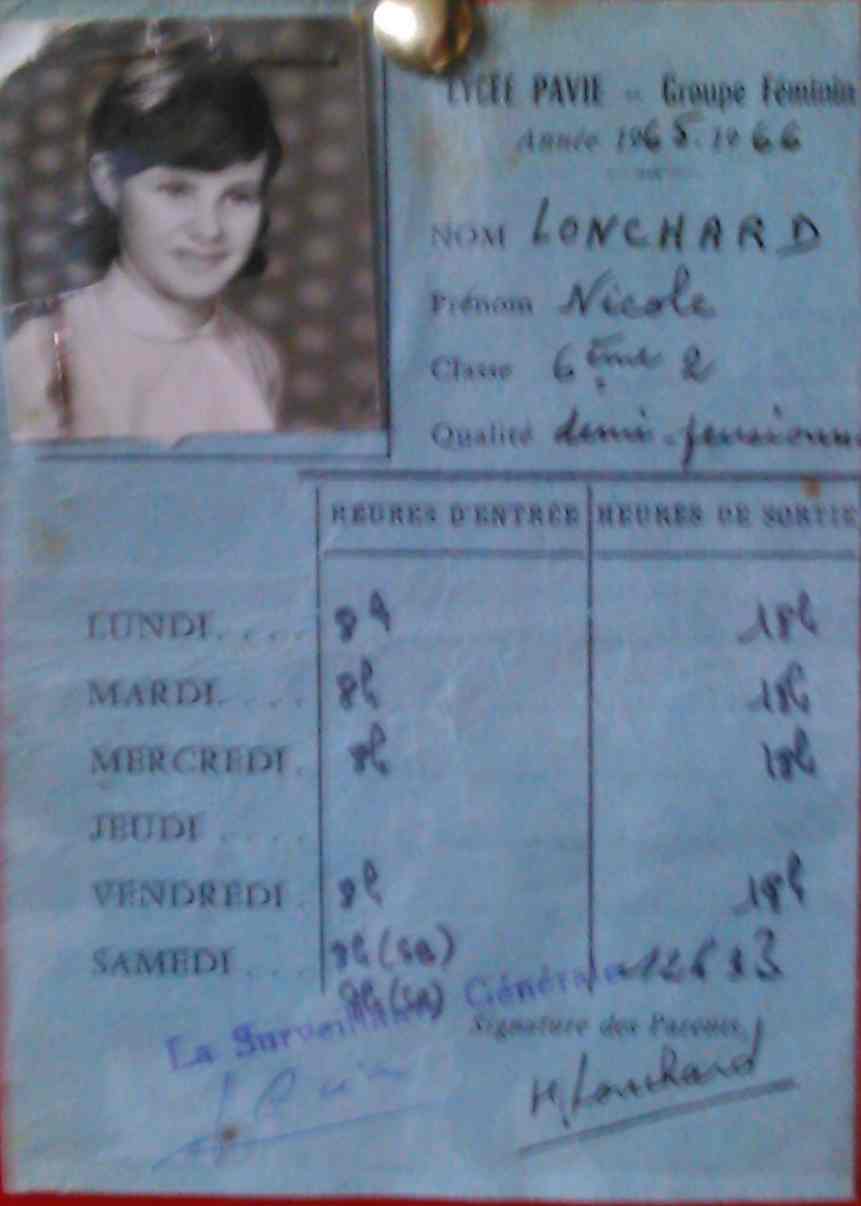 LYCÉE PAVIE - Groupe Féminin
Année 1965-1966
NOM LONCHARD
Prénom Nicole
Classe 6ème 2
Qualité demi-pensionn
HEURES D'ENTRÉE HEURES DE SORTIE
LUNDI.... 8h 18h
MARDI.... 8h 18h
MERCREDI. 8h 18h
JEUDI ....
VENDREDI. 8h 18h
SAMEDI .... 8h (SA)
9h (SB)
La Surveillante Générale
Signature des Parents,
H. Lonchard